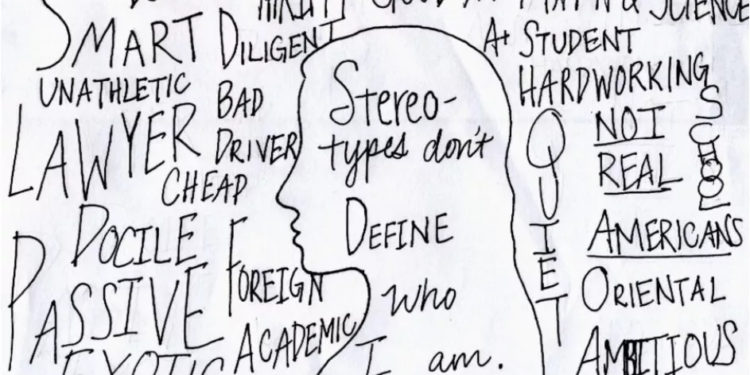 MATH & SCIENCE
SMART DILIGENT
A+ STUDENT
UNATHLETIC
HARDWORKING
BAD
DRIVER
LAWYER
CHEAP
DOCILE
PASSIVE
FOREIGN
ACADEMIC
EXOTIC
Stereo-
types don't
DEFINE
who
I am.
QUIET
NOT
REAL
AMERICANS
ORIENTAL
AMBITIOUS